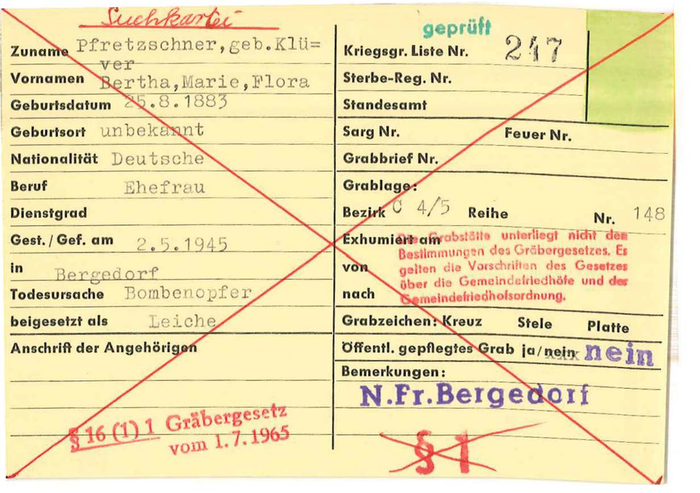 Suchkartei
geprüft
Zuname Pfretzschner,geb.Klü=
ver
Vornamen Bertha,Marie,Flora
Geburtsdatum 25.8.1883
Geburtsort unbekannt
Nationalität Deutsche
Beruf Ehefrau
Dienstgrad
Gest./Gef. am 2.5.1945
in Bergedorf
Todesursache Bombenopfer
beigesetzt als Leiche
Anschrift der Angehörigen
§ 16 (1) 1 Gräbergesetz
vom 1.7.1965
Kriegsgr. Liste Nr. 247
Sterbe-Reg. Nr.
Standesamt
Sarg Nr. Feuer Nr.
Grabbrief Nr.
Grablage:
Bezirk C 4/5 Reihe Nr. 148
Exhumiert am
von
nach
Die Grabstätte unterliegt nicht den
Bestimmungen des Gräbergesetzes. Es
gelten die Vorschriften des Gesetzes
über die Gemeindefriedhöfe und der
Gemeindefriedhofsordnung.
Grabzeichen: Kreuz Stele Platte
Öffentl. gepflegtes Grab ja/nein nein
Bemerkungen:
N.Fr.Bergedorf
§ 1